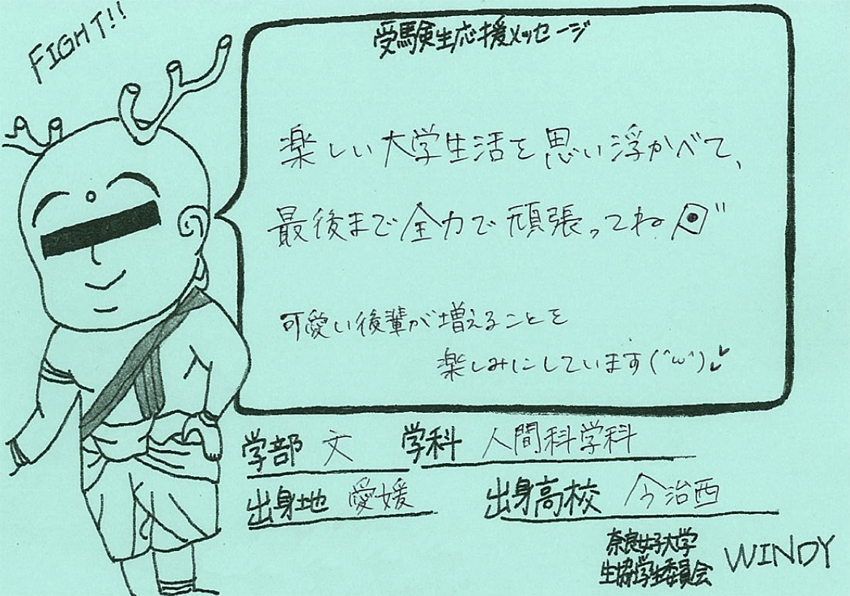 FIGHT!!
受験生応援メッセージ
楽しい大学生活を思い浮かべて、
最後まで全力で頑張ってね
可愛い後輩が増えることを
楽しみにしています(^ω^)
学部 文 学科 人間科学科
出身地 愛媛 出身高校 今治西
奈良女子大学
生協学生委員会 WINDY